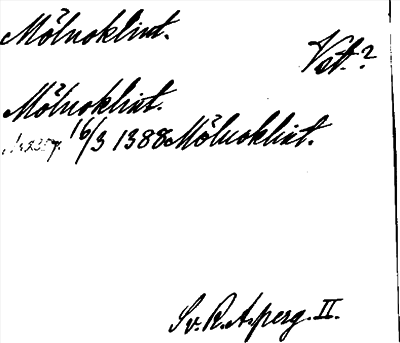 Mölnoklint.
Vst.?
Mölnoklint.
16/3 1388 Mölnoklint.
Sv. R. A. perg. II.